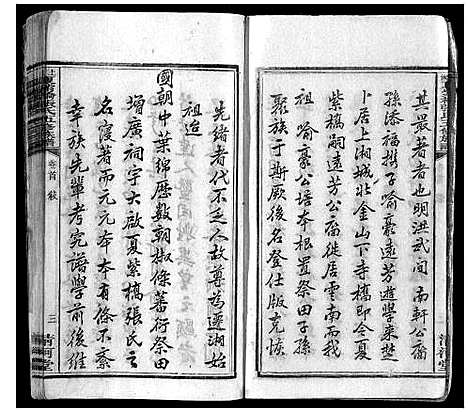 其最著者也明洪武間南軒公裔
孫添福携子喻豪遠芳遊學來楚
卜居上湘城北金山下寺橋即今夏
紫橋嗣遠芳公裔徙居雲南而我
祖喻豪公培本根置祭田子孫
聚族于斯厥後名登仕版克恢
先緒者代不乏人故尊為遷湘始
祖迨
國朝中葉綿歷數朝椒條蕃衍祭田
增廣祠宇大啟夏紫橋張氏之
名寖著而元元本本有條不紊
幸族先輩考究譜學前後維
卷首 敘
三
清河堂